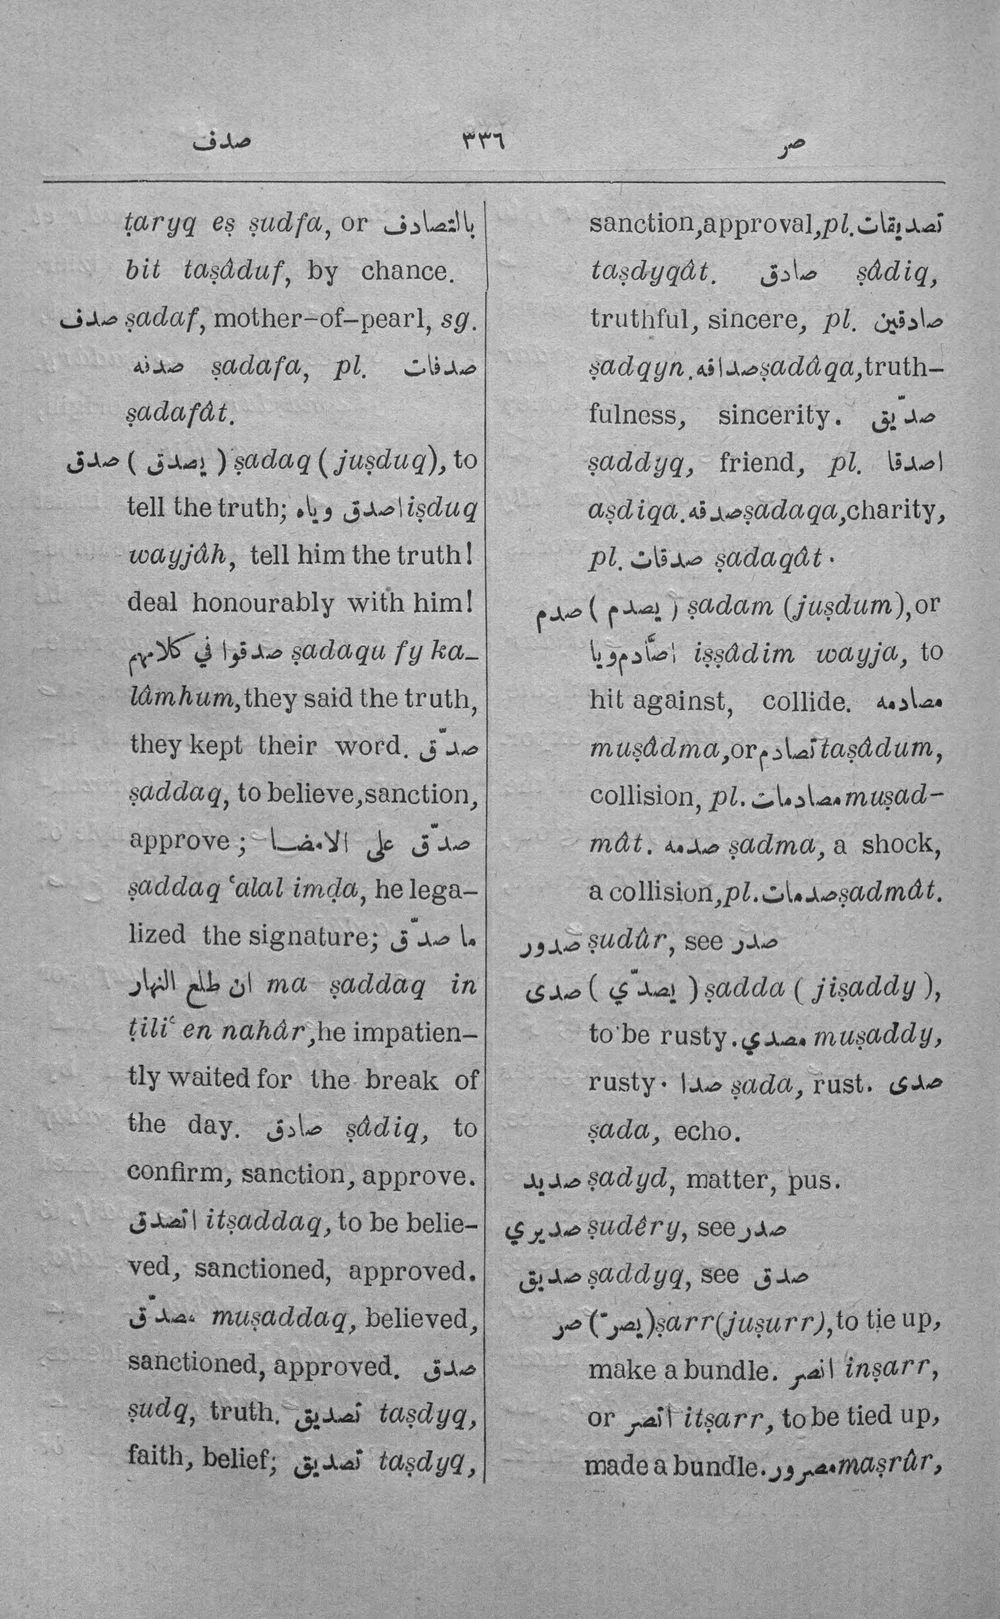 صدف ٣٣٦ صر
ṭaryq eṣ ṣudfa, or بالتصادف
bit taṣâduf, by chance.
صدف ṣadaf, mother-of-pearl, sg.
صدفه ṣadafa, pl. صدفات
ṣadafât.
صدق (يصدق) ṣadaq (juṣduq), to
tell the truth; اصدق وياه iṣduq
wayjâh, tell him the truth!
deal honourably with him!
صدقوا في كلامهم ṣadaqu fy ka-
lâmhum, they said the truth,
they kept their word. صدّق
ṣaddaq, to believe, sanction,
approve; صدّق على الامضـا
ṣaddaq ʿalal imḍa, he lega-
lized the signature; ما صدّق
ان طلع النهار ma ṣaddaq in
ṭiliʿ en nahâr, he impatien-
tly waited for the break of
the day. صادق ṣâdiq, to
confirm, sanction, approve.
اتصدق itṣaddaq, to be belie-
ved, sanctioned, approved.
مصدّق muṣaddaq, believed,
sanctioned, approved. صدق
ṣudq, truth. تصديق taṣdyq,
faith, belief; تصديق taṣdyq,
sanction, approval, pl. تصديقات
taṣdyqât. صادق ṣâdiq,
truthful, sincere, pl. صادقين
ṣadqyn. صداقه ṣadâqa, truth-
fulness, sincerity. صدّيق
ṣaddyq, friend, pl. اصدقا
aṣdiqa. صدقه ṣadaqa, charity,
pl. صدقات ṣadaqât.
صدم (يصدم) ṣadam (juṣdum), or
اصّادم ويا iṣṣâdim wayja, to
hit against, collide. مصادمه
muṣâdma, or تصادم taṣâdum,
collision, pl. مصادمات muṣad-
mât. صدمه ṣadma, a shock,
a collision, pl. صدمات ṣadmât.
صدور ṣudûr, see صدر
صدى (يصدّي) ṣadda (jiṣaddy),
to be rusty. مصدي muṣaddy,
rusty. صدا ṣada, rust. صدى
ṣada, echo.
صديد ṣadyd, matter, pus.
صديري ṣudêry, see صدر
صديق ṣaddyq, see صدق
صر (يصرّ) ṣarr (juṣurr), to tie up,
make a bundle. انصر inṣarr,
or اتصر itṣarr, to be tied up,
made a bundle. مصرور maṣrûr,